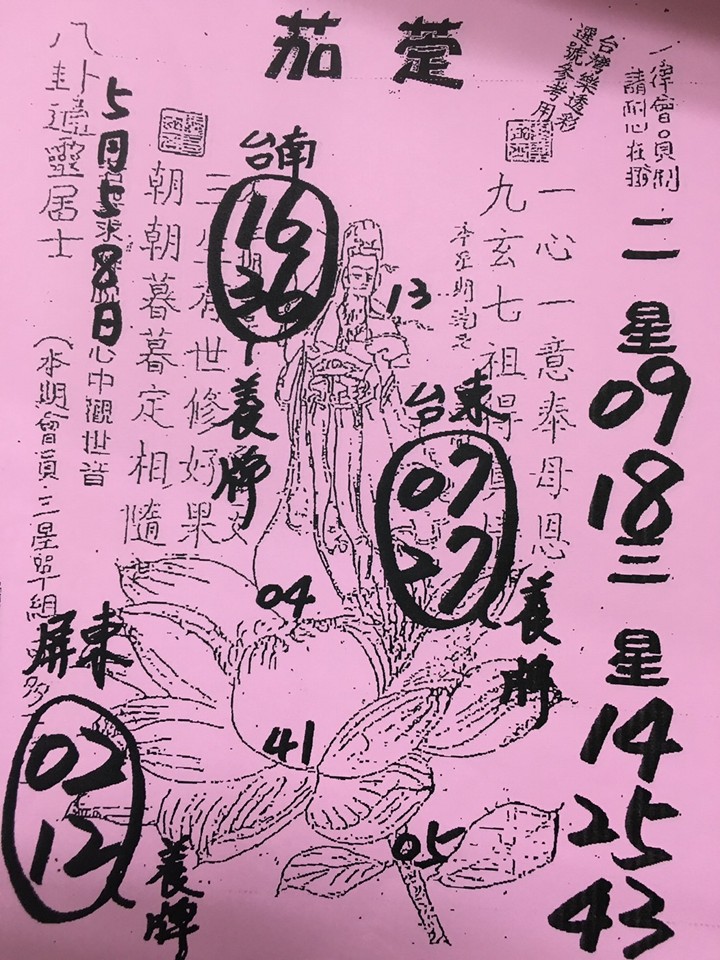 茄萣
台灣樂透彩
選號參考用
一律會員制
請耐心在攤
二星
09
18
三星
14
25
43
一心一意奉母恩
九玄七祖得
13
台東
07
27
養牌
台南
16
36
養牌
世修好果
朝朝暮暮定相隨
5月5
8日
心中觀世音
八卦通靈居士
(本期會員三星單組
屏東
02
12
養牌
04
41
05